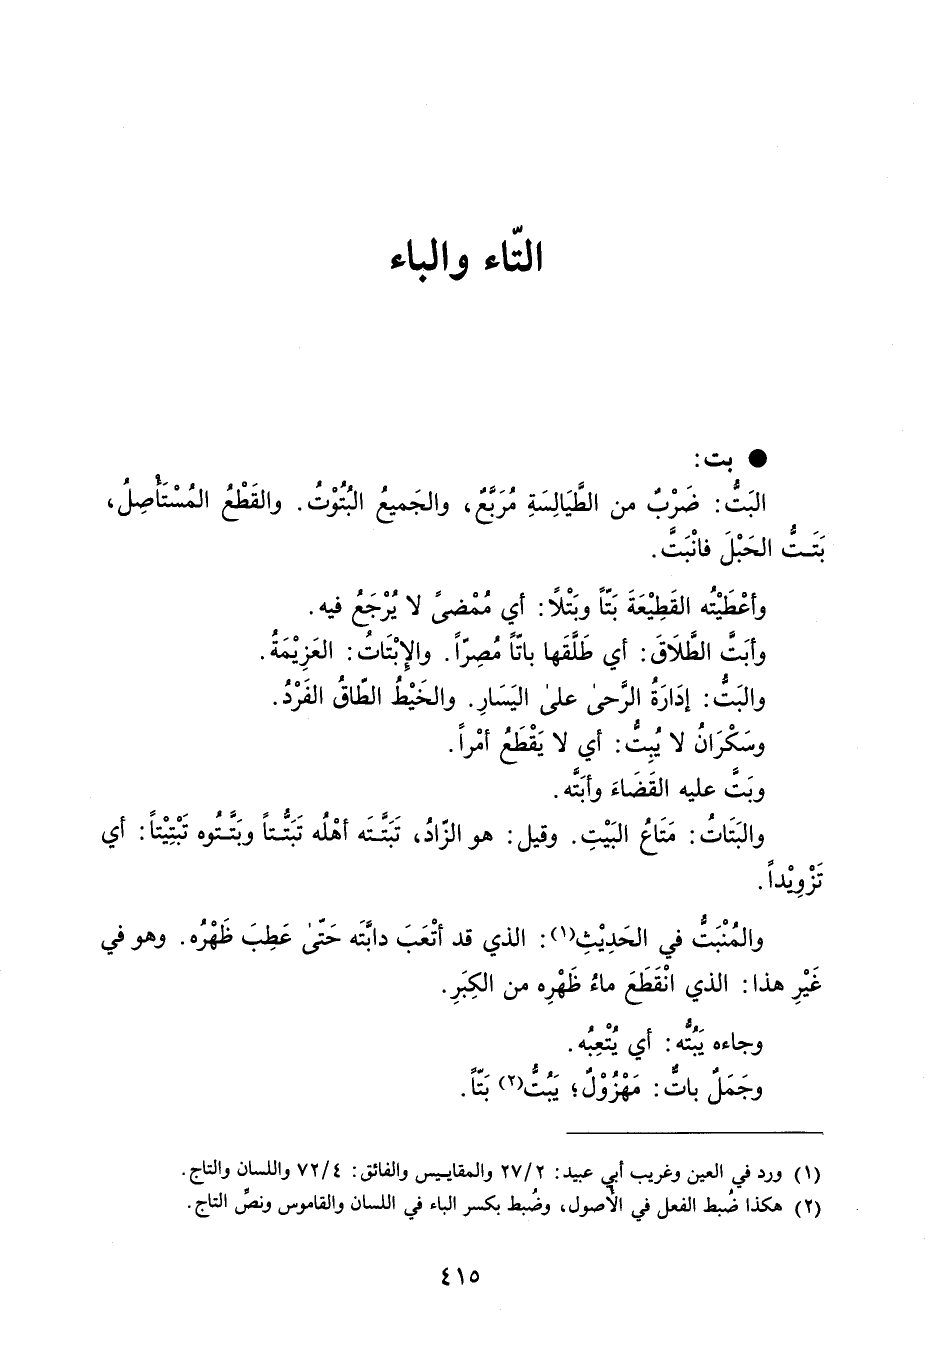 التّاء والباء
● بت:
البَتُّ: ضَرْبٌ من الطَّيَالِسَةِ مُرَبَّعٌ، والجَميعُ البُتُوْتُ. والقَطْعُ المُسْتَأْصِلُ،
بَتَـتُّ الحَبْلَ فانْبَتَّ.
وأعْطَيْتُه القَطِيْعَةَ بَتّاً وبَتْلًا: أي مُمْضىً لا يُرْجَعُ فيه.
وأبَتَّ الطَّلَاقَ: أي طَلَّقَها باتّاً مُصِرّاً. والإِبْتَاتُ: العَزِيْمَةُ.
والبَتُّ: إدَارَةُ الرَّحىٰ علىٰ اليَسَارِ. والخَيْطُ الطّاقُ الفَرْدُ.
وسَكْرَانُ لا يُبِتُّ: أي لا يَقْطَعُ أمْراً.
وبَتَّ عليه القَضَاءَ وأبَتَّه.
والبَتَاتُ: مَتَاعُ البَيْتِ. وقيل: هو الزّادُ، تَبَتَّـتَه أهْلُه تَبَتُّـتاً وبَتَّـتُوه تَبْتِيْتاً: أي
تَزْوِيْداً.
والمُنْبَتُّ في الحَدِيْثِ(١): الذي قد أتْعَبَ دابَّتَه حَتّىٰ عَطِبَ ظَهْرُه. وهو في
غَيْرِ هذا: الذي انْقَطَعَ ماءُ ظَهْرِه من الكِبَرِ.
وجاءه يَبُتُّه: أي يُتْعِبُه.
وجَمَلٌ باتٌّ: مَهْزُوْلٌ؛ يَبُتُّ(٢) بَتّاً.
(١) ورد في العين وغريب أبي عبيد: ٢٧/٢ والمقاييس والفائق: ٧٢/٤ واللسان والتاج.
(٢) هكذا ضُبط الفعل في الأصول، وضُبط بكسر الباء في اللسان والقاموس ونصِّ التاج.
٤١٥